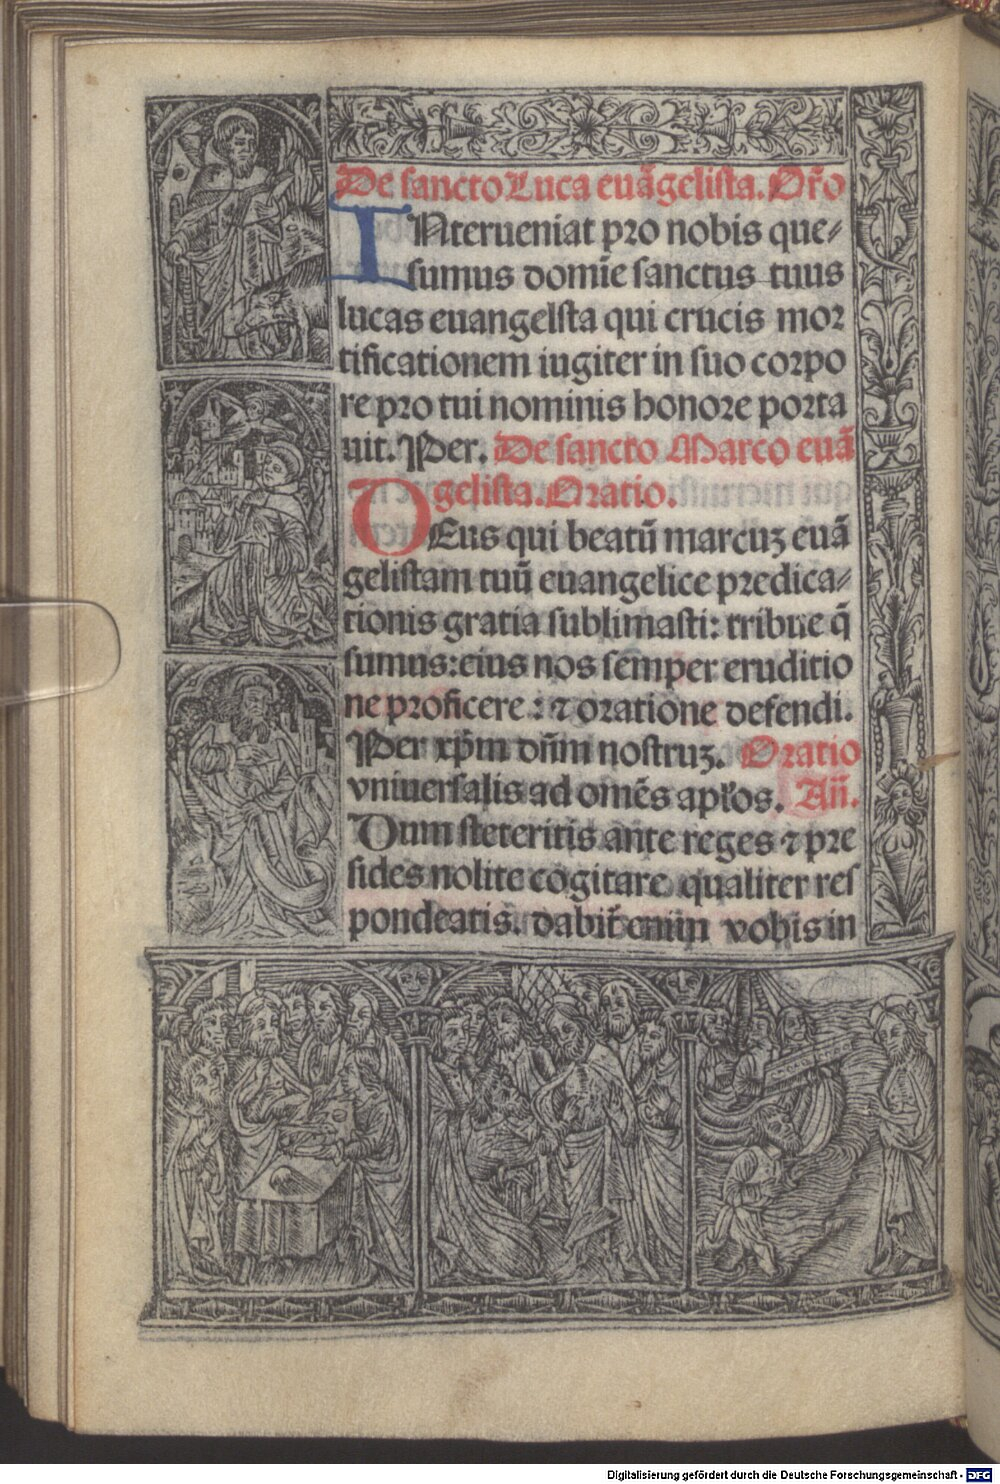 De sancto Luca euāgelista. Or̄o
INterueniat pro nobis que⸗
sumus domīe sanctus tuus
lucas euangelsta qui crucis mor
tificationem iugiter in suo corpo
re pro tui nominis honore porta
uit. Per. De sancto Marco euā
gelista. Oratio.
DEus qui beatū marcuʒ euā
gelistam tuū euangelice predica⸗
tionis gratia sublimasti: tribue q̄
sumus: eius nos semper eruditio
ne proficere: ⁊ oratione defendi.
Per xp̄m dn̄m nostruʒ. Oratio
vniuersalis ad omēs apl̄os. An̄.
Dum steteritis ante reges ⁊ pre
sides nolite cogitare qualiter res
pondeatis. dabit̄ enim vobis in
Digitalisierung gefördert durch die Deutsche Forschungsgemeinschaft - DFG